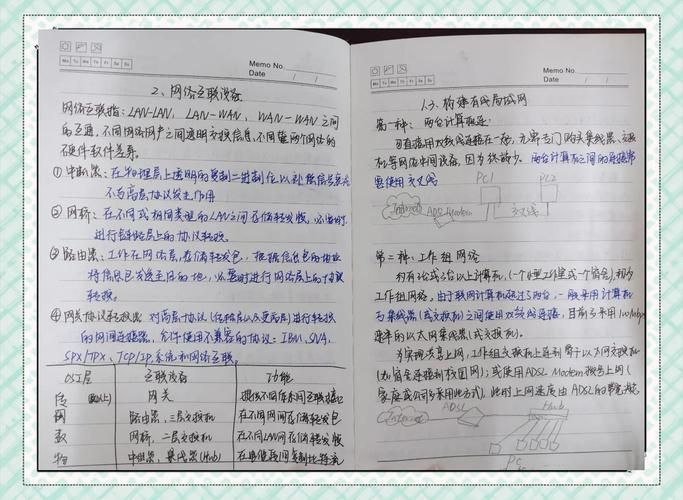 Memo No.
Mo Tu We Th Fr Sa Su
Date / /
2、网络互联设备
网络互联指：LAN-LAN，LAN-WAN，WAN-WAN之间
的互通，不同网络用户之间透明交换信息，不同 两个网络的
硬件软件差异。
①中继器：在物理层上透明的复制二进制位以补偿信号衰减
不与高层协议发生作用
②网桥：在不同或相同类型的LAN之间存储转发帧，必要时
进行链路层上的协议转换
③路由器：工作在网络层，存储转发包，根据信息包的地址
将信息包发送至目的地，必要时进行网络层上的协议
转换。
④网关协议转换器 对高层协议（传输层以及更高层）进行转换
的网间连接器，允许使用不兼容的协议：IBM，SNA，
SPX/IPX、TCP/IP系统和网络互联。
OSI层 互联设备 功能
传 (以上) 网关 提供不同体系间互联接口
网 路由器、三层交换机 在不同网间存储转发包
数 网桥、二层交换机 在不同LAN间存储转发帧
物 中继器、集线器(Hub) 在电缆段间复制比特流
Memo No.
Mo Tu We Th Fr Sa Su
Date / /
1.3、构建有线局域网
第一种：两台计算机连
可直接用双绞线连接在一起，无需专门购买集线器、交换
机等网络中间设备，因为 两台计算机之间的连接常
要使用交叉线
PC1 PC2
Internet ADSL Modem 交叉线
第二种：工作组网络
约有3台或3台以上计算机，(一个小型工作室或一个宿舍)，称为
工作组网络，由于联网计算机超过了两台，一般采用计算机
与集线器(或交换机)之间使用双绞线连接，目前多采用100Mbps
速率的以太网集线器(或交换机)。
为实现共享上网，工作组交换机上连到 以太网交换机
(如宿舍连接到校园网)；或使用ADSL Modem拨号上网(
家庭或公司多采用此方式)，此时上网速度由ADSL的带宽决定
Internet ADSL Hub
PC